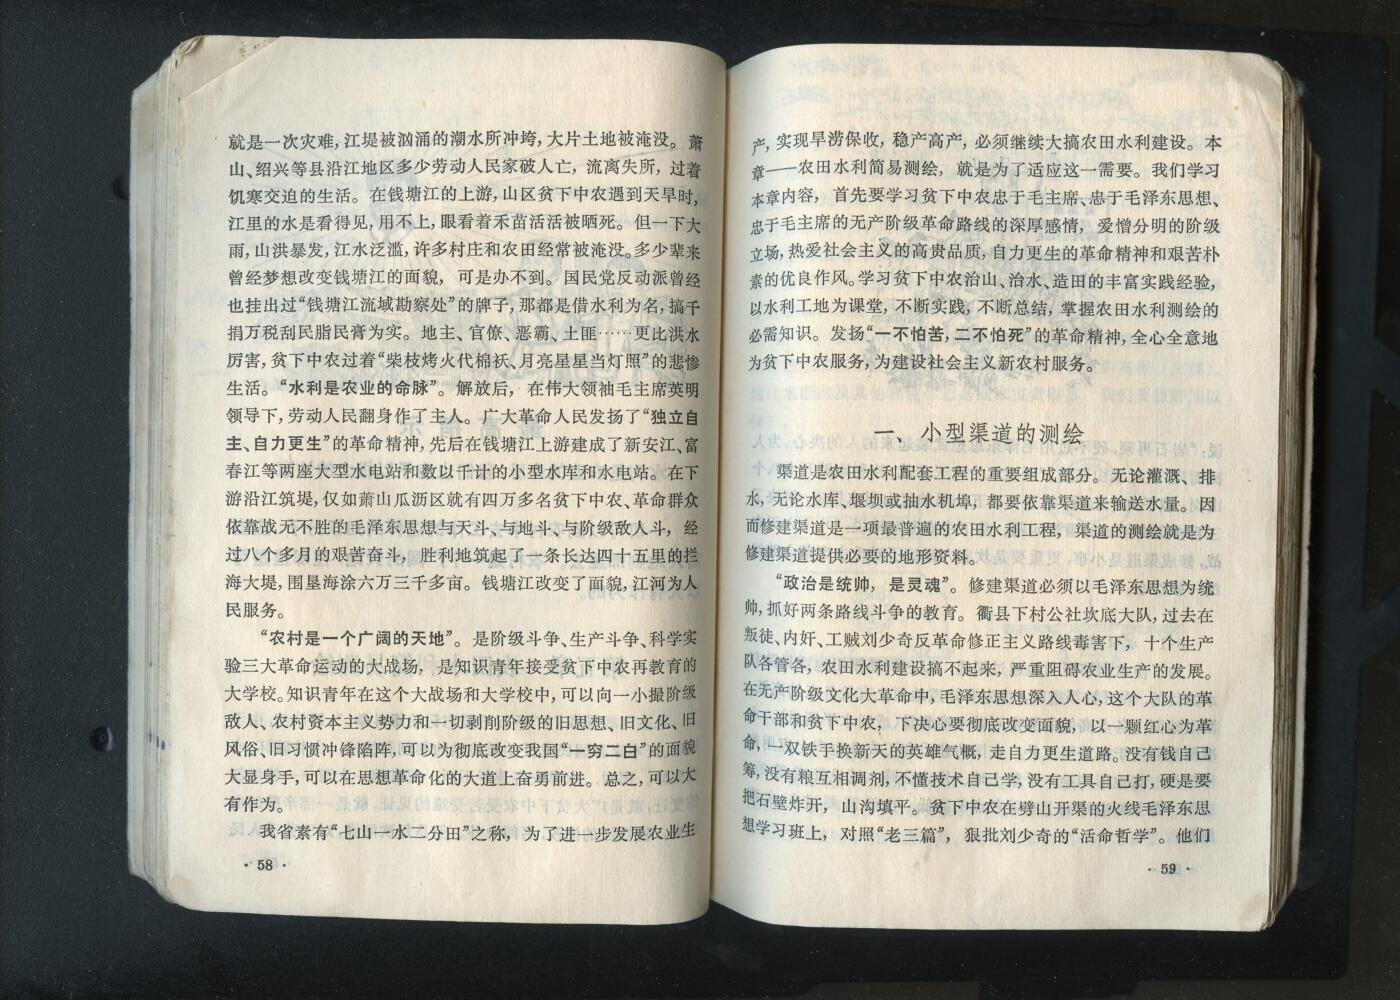 就是一次灾难,江堤被汹涌的潮水所冲垮,大片土地被淹没。萧
山、绍兴等县沿江地区多少劳动人民家破人亡，流离失所，过着
饥寒交迫的生活。在钱塘江的上游,山区贫下中农遇到天旱时,
江里的水是看得见,用不上,眼看着禾苗活活被晒死。但一下大
雨,山洪暴发,江水泛滥,许多村庄和农田经常被淹没。多少辈来
曾经梦想改变钱塘江的面貌，可是办不到。国民党反动派曾经
也挂出过“钱塘江流域勘察处”的牌子,那都是借水利为名,搞千
捐万税刮民脂民膏为实。地主、官僚、恶霸、土匪……更比洪水
厉害,贫下中农过着“柴枝烤火代棉袄、月亮星星当灯照”的悲惨
生活。“水利是农业的命脉”。解放后，在伟大领袖毛主席英明
领导下,劳动人民翻身作了主人。广大革命人民发扬了“独立自
主、自力更生”的革命精神,先后在钱塘江上游建成了新安江、富
春江等两座大型水电站和数以千计的小型水库和水电站。在下
游沿江筑堤,仅如萧山瓜沥区就有四万多名贫下中农、革命群众
依靠战无不胜的毛泽东思想与天斗、与地斗、与阶级敌人斗，经
过八个多月的艰苦奋斗，胜利地筑起了一条长达四十五里的拦
海大堤,围垦海涂六万三千多亩。钱塘江改变了面貌,江河为人
民服务。
“农村是一个广阔的天地”。是阶级斗争、生产斗争、科学实
验三大革命运动的大战场，是知识青年接受贫下中农再教育的
大学校。知识青年在这个大战场和大学校中,可以向一小撮阶级
敌人、农村资本主义势力和一切剥削阶级的旧思想、旧文化、旧
风俗、旧习惯冲锋陷阵,可以为彻底改变我国“一穷二白”的面貌
大显身手,可以在思想革命化的大道上奋勇前进。总之,可以大
有作为。
我省素有“七山一水二分田”之称，为了进一步发展农业生
· 58 ·
产,实现旱涝保收，稳产高产，必须继续大搞农田水利建设。本
章——农田水利简易测绘，就是为了适应这一需要。我们学习
本章内容，首先要学习贫下中农忠于毛主席、忠于毛泽东思想、
忠于毛主席的无产阶级革命路线的深厚感情，爱憎分明的阶级
立场,热爱社会主义的高贵品质,自力更生的革命精神和艰苦朴
素的优良作风。学习贫下中农治山、治水、造田的丰富实践经验,
以水利工地为课堂，不断实践,不断总结，掌握农田水利测绘的
必需知识。发扬“一不怕苦,二不怕死”的革命精神,全心全意地
为贫下中农服务,为建设社会主义新农村服务。
一、小型渠道的测绘
渠道是农田水利配套工程的重要组成部分。无论灌溉、排
水,无论水库、堰坝或抽水机埠，都要依靠渠道来输送水量。因
而修建渠道是一项最普遍的农田水利工程，渠道的测绘就是为
修建渠道提供必要的地形资料。
“政治是统帅，是灵魂”。修建渠道必须以毛泽东思想为统
帅,抓好两条路线斗争的教育。衢县下村公社坎底大队,过去在
叛徒、内奸、工贼刘少奇反革命修正主义路线毒害下，十个生产
队各管各，农田水利建设搞不起来，严重阻碍农业生产的发展。
在无产阶级文化大革命中,毛泽东思想深入人心,这个大队的革
命干部和贫下中农，下决心要彻底改变面貌，以一颗红心为革
命,一双铁手换新天的英雄气概，走自力更生道路。没有钱自己
筹,没有粮互相调剂,不懂技术自己学,没有工具自己打,硬是要
把石壁炸开，山沟填平。贫下中农在劈山开渠的火线毛泽东思
想学习班上，对照“老三篇”，狠批刘少奇的“活命哲学”。他们
· 59 ·